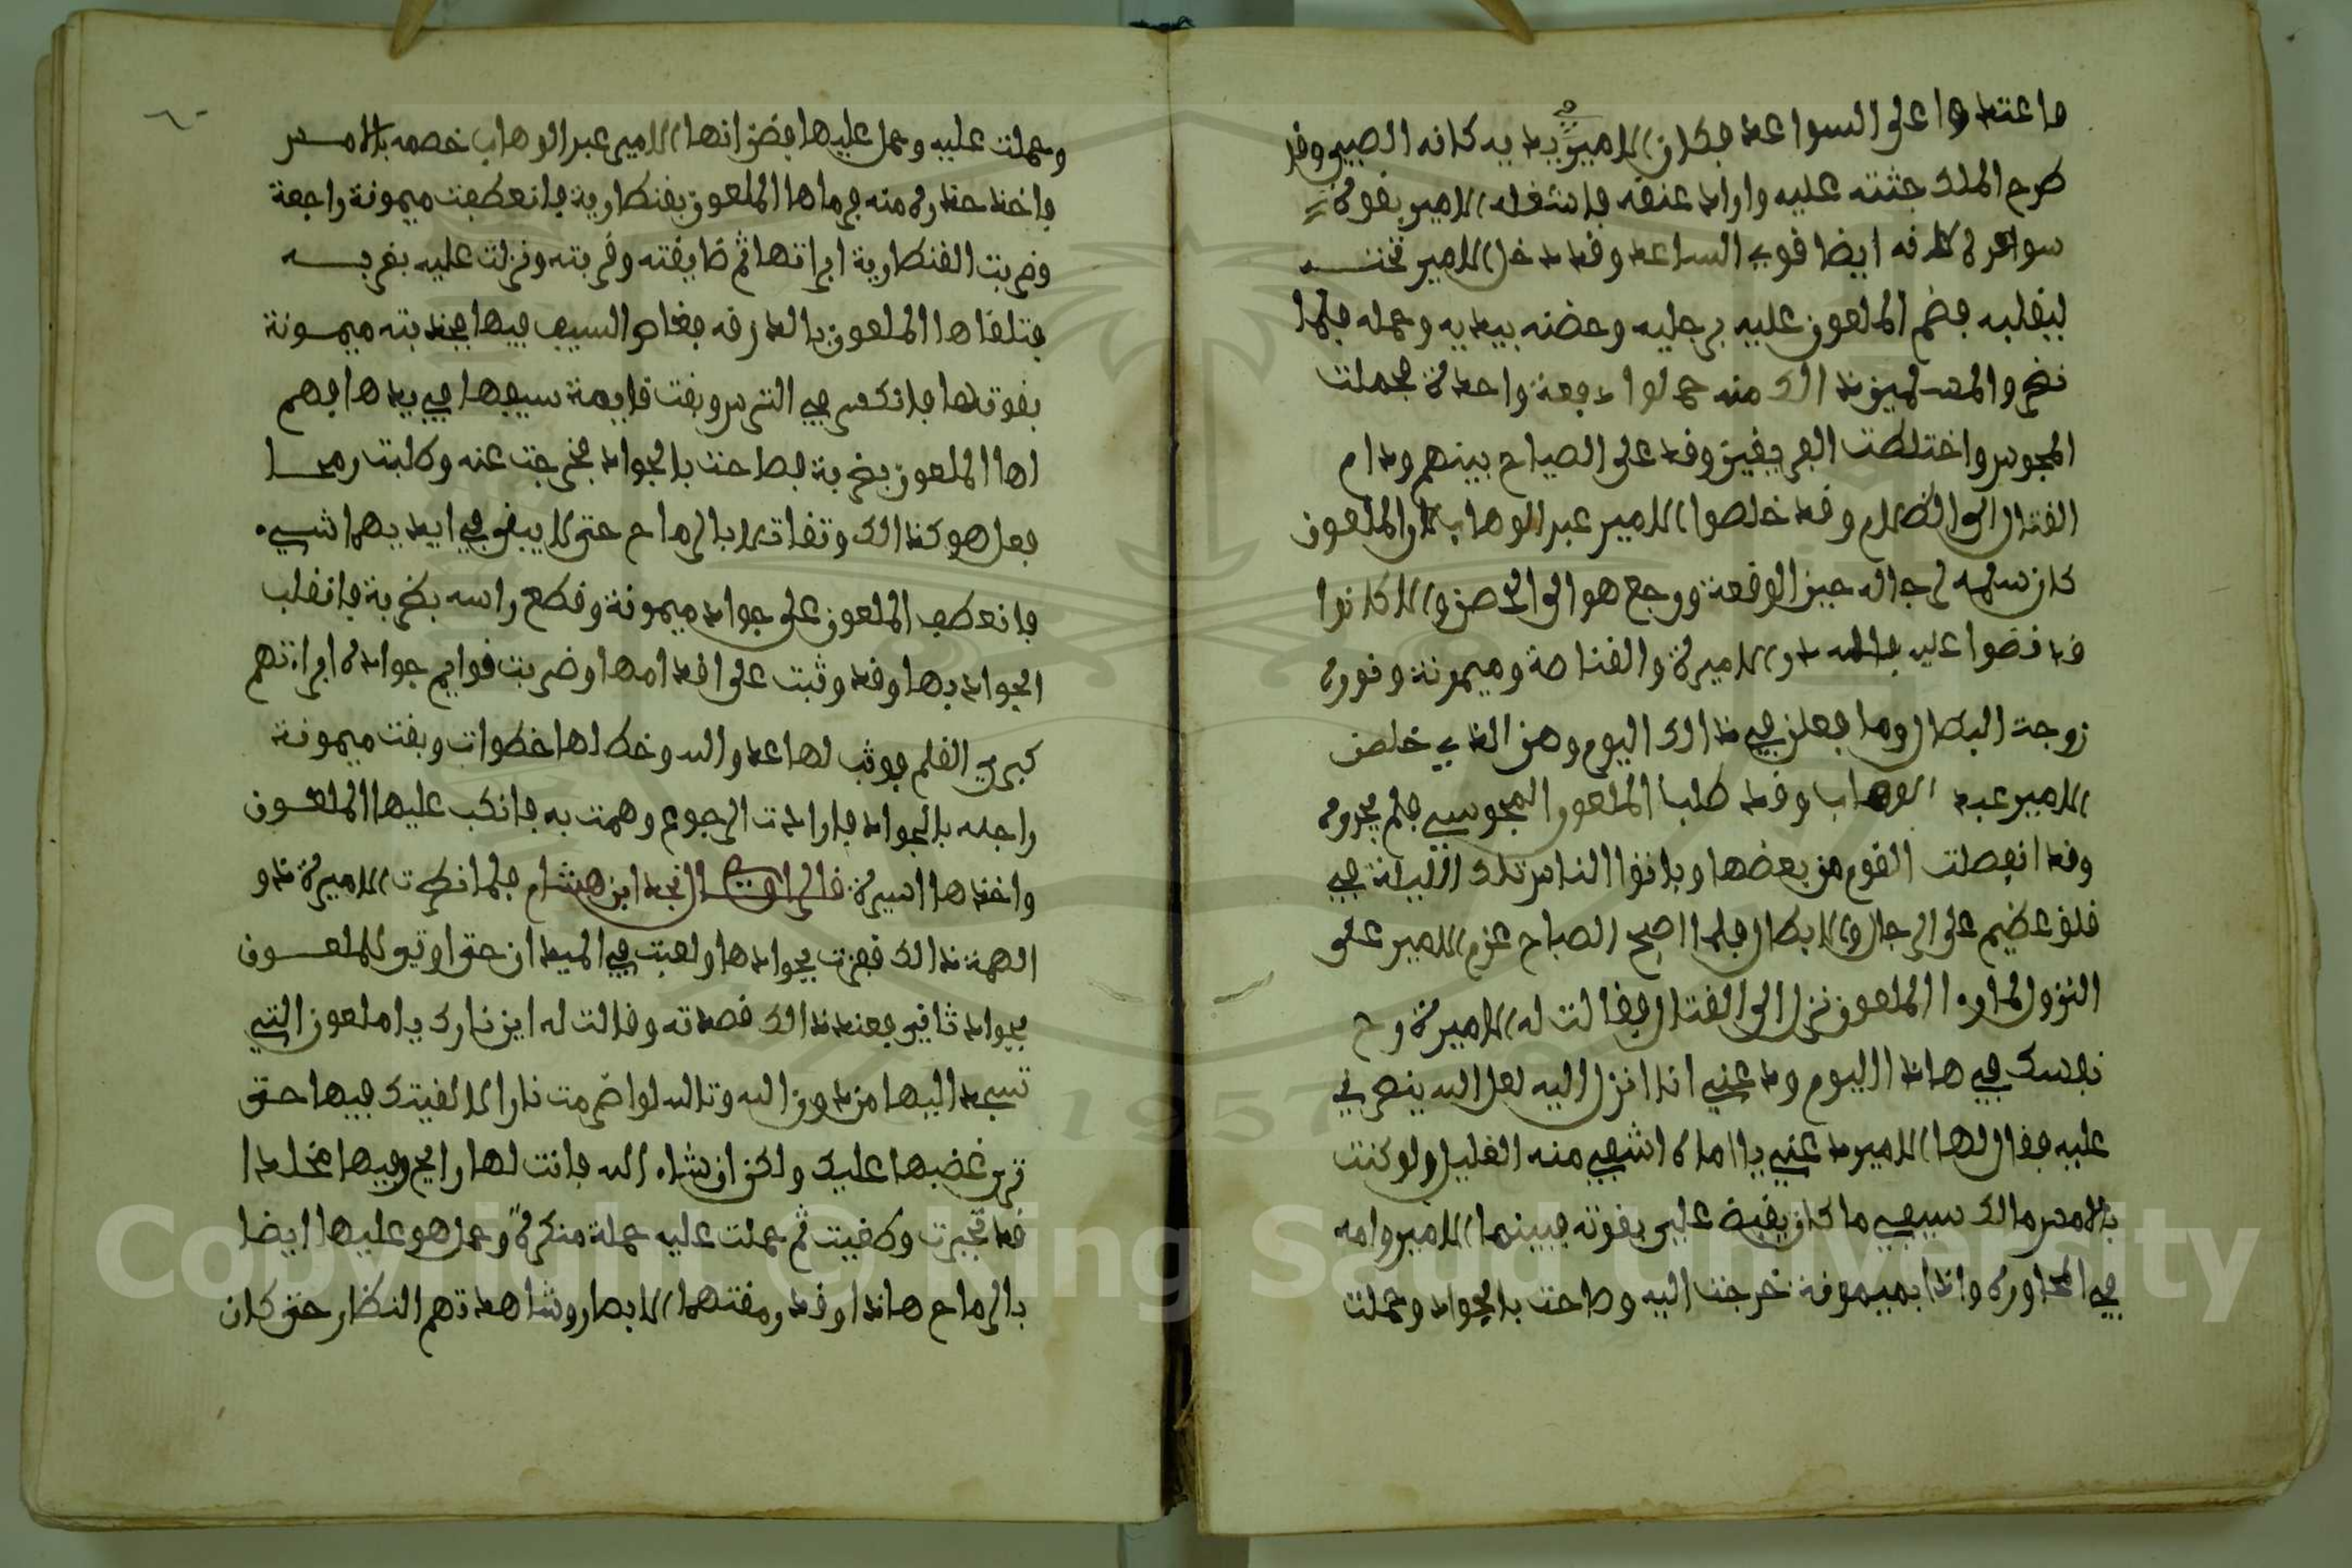 فاعتقدوا على السواعد فكان الامير في يديه كانه الصبي وقد
طرح الملك جثته عليه واراد عنقه فانشغله الامير بقوة
سواعده لانه ايضا قوي الساعد وقد دخل الامير تحته
ليقلبه فضم الملعون عليه برجليه وحضنه بيديه وحمله فلما
نضروا المسلمين ذالك منه حملوا دفعة واحدة فحملت
المجوس واختلطت الفريقين وقد على الصياح بينهم ودام
القتال الى الظلام وقد خلصوا الامير عبد الوهاب والملعون
كان سلمه لرجاله حين الوقعة ورجع هو الى الحصن والا كانوا
قد قضوا عليه الاميرة والقناصة وميمونة ونورة
زوجت البطال وما فعلن في ذالك اليوم وهن الذي خلصن
الامير عبد الوهاب وقد طلبا الملعون المجوسي فلم يجدوه
وقد انفصلت القوم من بعضها وباتوا الناس تلك الليلة في
قلق عظيم على الرجال والابطال فلما اصبح الصباح عزم الامير على
النزول لما راء الملعون نزل الى القتال فقالت له الاميرة رح
نفسك في هاذا اليوم ودعني انا انزل اليه لعل الله ينصرني
عليه فقال لها الامير دعني يا اماه اشفي منه الغليل ولو كنت
بالامس مالك سيفي ما كان يقبض علي بقوته فبينما الامير وامه
في المحاورة واذا بميمونة خرجت اليه وصاحت بالجواد وحملت
وحملت عليه وحمل عليها فضن انها الامير عبد الوهاب خصمه بالامس
فاخذ حذره منه فرماها الملعون بقنطارية فانعطفت ميمونة راجعة
وضربت القنطارية ابراتها ثم ضايقته وقربته ونزلت عليه بضربه
فتلقاها الملعون بالدرقه فغاص السيف فيها فجذبته ميمونة
بقوتها فانكسر في الترس وبقت قايمة سيفها في يدها فهم
اها الملعون بضربة فصاحت بالجواد فخرجت عنه وطلبت رمحا
فعل هو كذالك وتقاتلا بالرماح حتى لا يبقى في ايديهما شيء
فانعطف الملعون على جواد ميمونة وقطع راسه بضربة فانقلب
الجواد بها وقد وثبت على اقدامها وضربت قوايم جواده ابراتهم
كبري القلم فوثب لها عدو الله وخطا لها خطوات وبقت ميمونة
راجله بالجواد فارادت الرجوع وهمت به فانكب عليها الملعون
واخذها اسيرة قال الراوي النجد ابن هشام فلما نظرت الاميرة ذو
الهمة ذالك قفزت بجوادها ولعبت في الميدان حتى اوتو للملعون
بجواد ثاني فعند ذالك قصدته وقالت له اين نارك يا ملعون التي
تسجد اليها من دون الله وتالله لو اضرمت نارا لالقيتك فيها حتى
ترى غضبها عليك ولكن ان شاء الله فانت لها رايح وفيها مخلدا
فقد تجبرت وطغيت ثم حملت عليه حملة منكرة وحمل هو عليها ايضا
بالرماح هاذا وقد رمقتهما الابصار وشاهدتهم النظار حتى كان